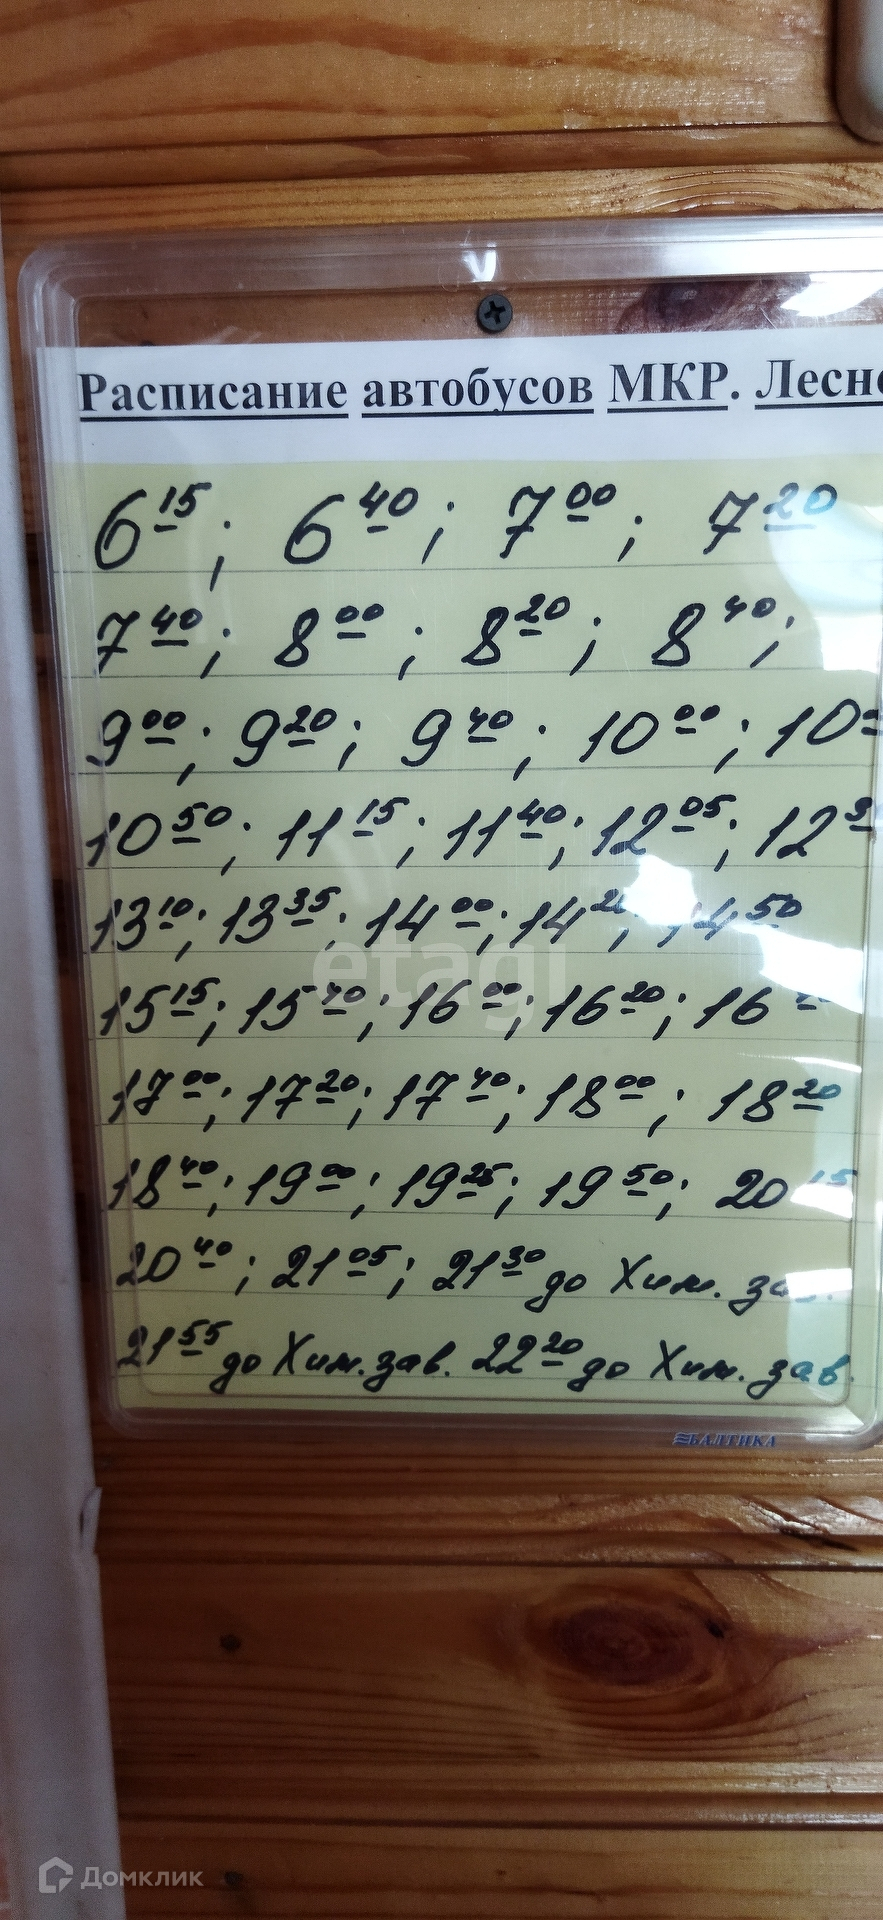 Расписание автобусов МКР.
6 15; 6 40; 7 00; 7 20
7 40; 8 00; 8 20; 8 40;
9 00; 9 20; 9 40; 10 00;
10 50; 11 15; 11 40; 12 05;
13 10; 13 35; 14 00; 14 50
15 15; 15 40; 16 00; 16 20;
17 00; 17 20; 17 40; 18 00; 18 20
18 40; 19 00; 19 25; 19 50; 20 15
20 40; 21 05; 21 30 до Хим. зав.
21 55 до Хим. зав. 22 20 до Хим. зав.
etagi
БАЛТИКА
Домклик